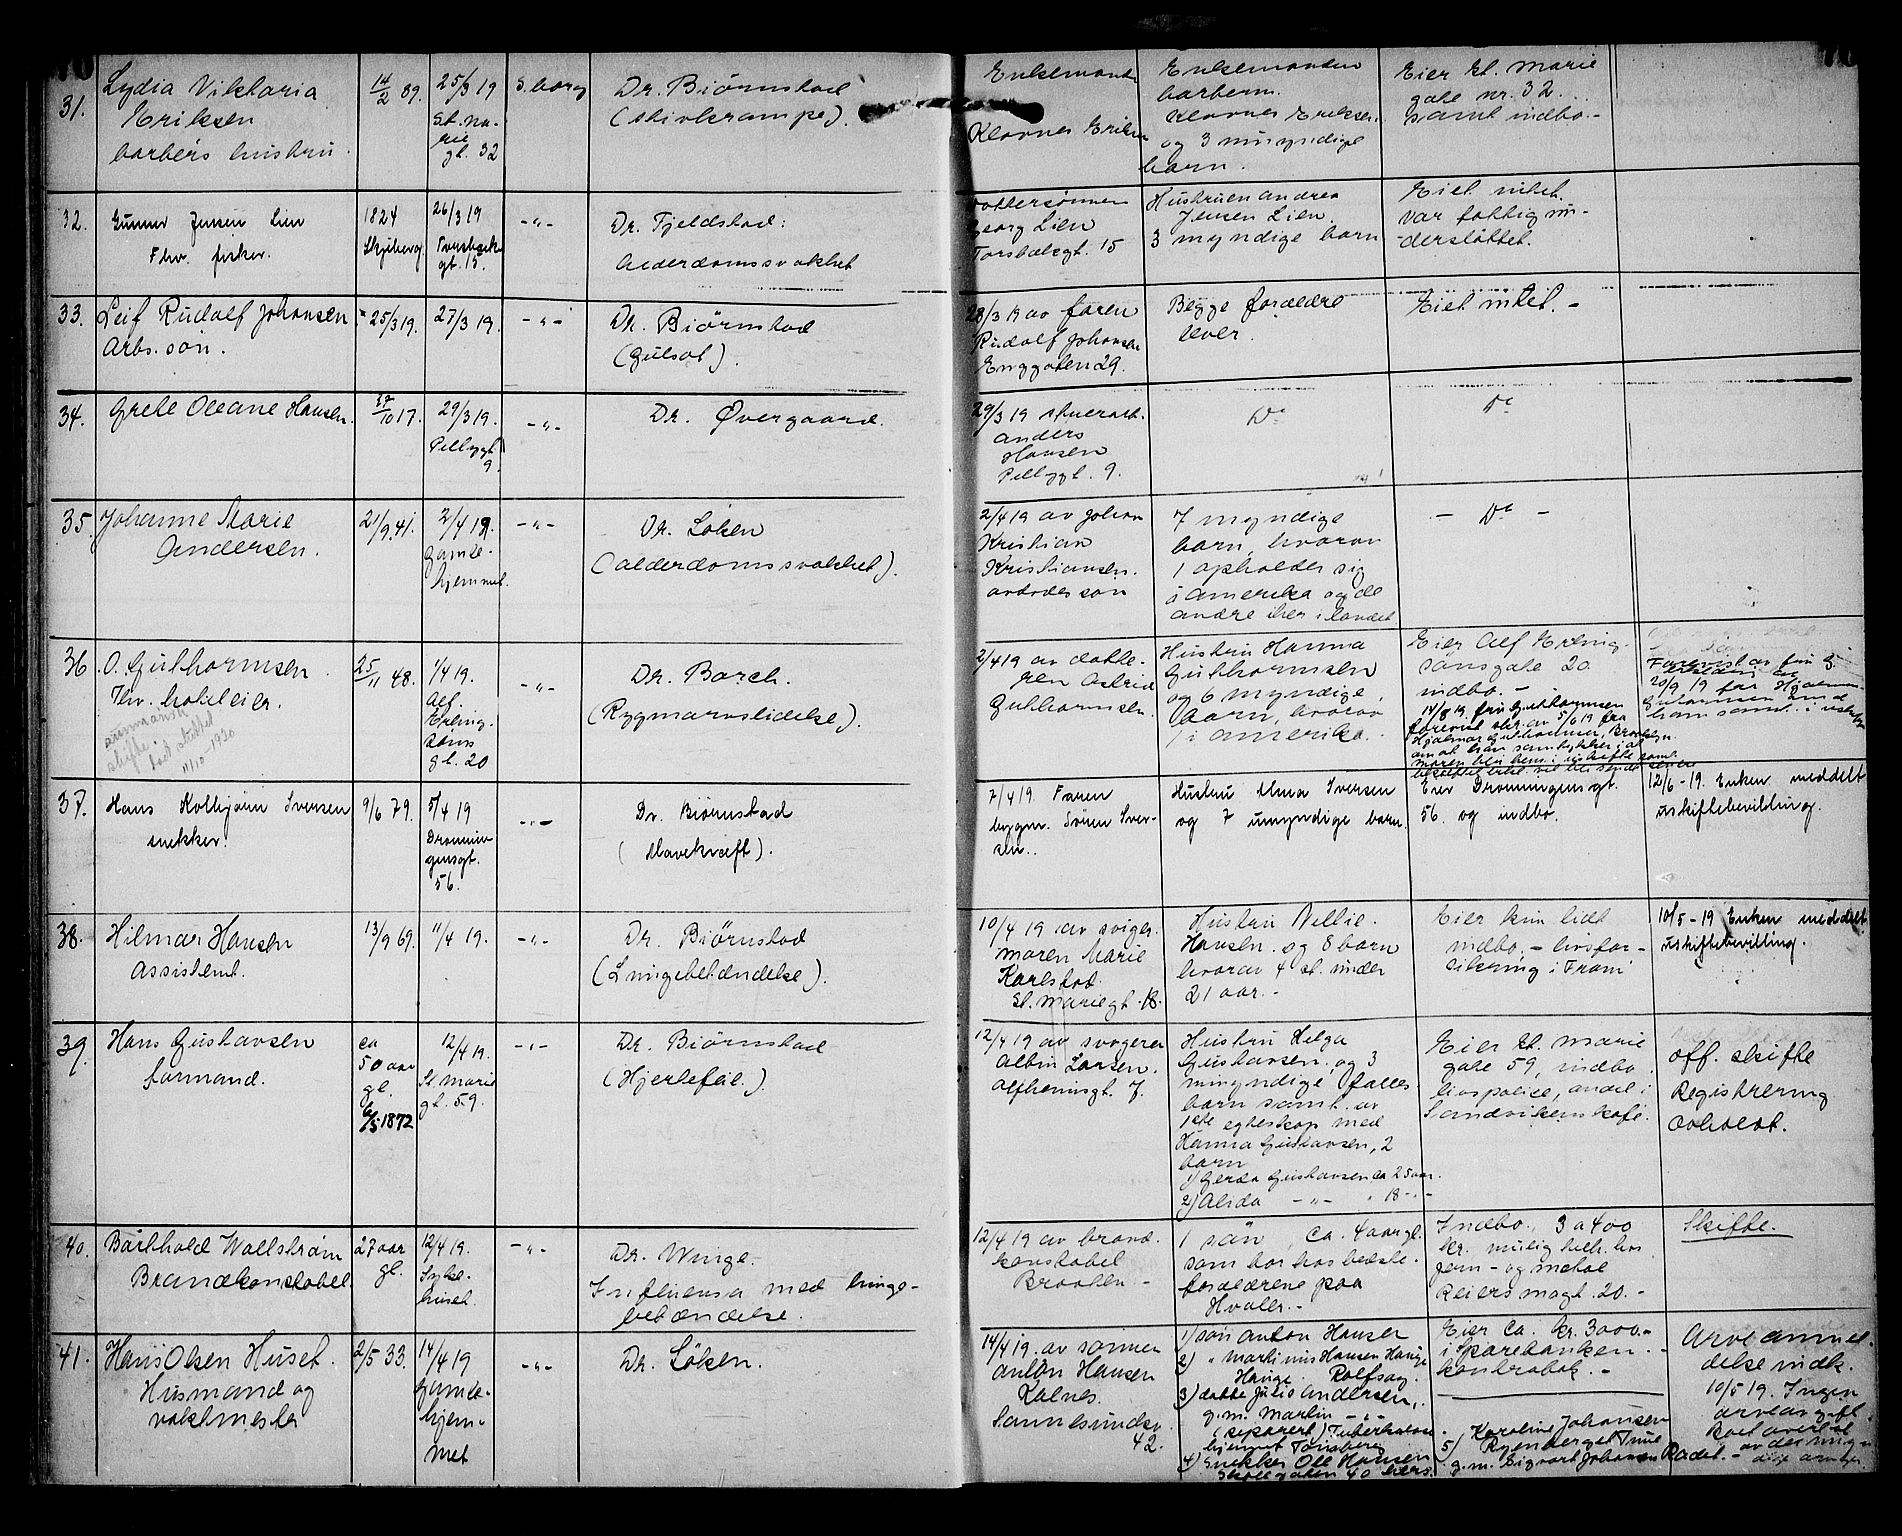 31.
Lydia Viktoria
Eriksen
barbérs hustru.
14/2 89.
25/3 19
St. ma-
rie
gt. 32
S.borg
Dr. Biørnstad
(stivkrampe).
Enkemanden
Klavnes Eriksen
Enkemanden
barberm.
Klavnes Eriksen.
og 3 umyndige
barn.
Eier St. Marie
gate nr. 32.
samt indbo.-
32.
Gunner Jensen Lien
Fhv. fisker.
1824
Skjeberg
26/3 19
Torsbæk
gt. 15.
-"-
Dr. Fjeldstad:
Alderdomssvakhet
Dattersønnen
Georg Lien
Torsbækgt. 15
Hustruen Andrea
Jensen Lien.
3 myndige barn
Eiet intet.
Var fattig un-
derstøttet.
33.
Leif Rudolf Johansen
Arbs. søn.
25/3 19.
27/3 19.
-"-
Dr. Biørnstad
(Gulsot).
28/3 19 av faren
Rudolf Johansen
Enggaten 29.
Begge forældre
lever.
Eiet intet. -
34.
Grete Oleane Hansen.
17.
29/3 19.
Pellygt
9.
-"-
Dr. Øvergaard.
29/3 19 stuerarb.
Anders
Hansen
Pellygt. 9.
Do
Do
35.
Johanne Marie
Andersen.
21/9 41.
2/4 19.
Gamle-
hjemmet.
-"-
Dr. Løken
(alderdomssvakhet).
2/4 19 av Johan
Kristian
Kristiansen.
avdødes søn
7 myndige
barn, hvorav
1 opholder sig
i Amerika og de
andre her i landet
- Do -
36
O. Guthormsen.
Fhv. hotileier.
11/10-1920
25/11 48.
1/4 19.
Alf.
Erling-
søns
gt. 20
-"-
Dr. Barch.
(Rygmarvslidelse).
2/4 19 av datte-
ren Astrid
Guthormsen.
Hustru Hanna
Guthormsen
og 6 myndige
barn, hvorav
1 i Amerika.
Eier Alf Erling-
sønsgate 20
indbo. -
14/8 19. fru Guthormsen
forevist skr. av 5/6 19 fra
Hjalmar Guthormsen, Brooklyn.
om at han samtykker i at
moren blir hens. i uskifte
20/9 19 fra Hjalmar
Guthormsen
37.
Hans Kolbjørn Iversen
snekker.
9/6 79.
5/4 19
Dronnin-
gensgt.
56.
-"-
Dr. Biørnstad
(Mavekræft).
7/4 19. Faren
bygm. Sören Iver-
sen.
Hustru Alma Iversen
og 7 umyndige barn.
Eier Dronningensgt.
56. og indbo.
12/6-19. Enken meddelt
uskiftebevilling.
38.
Hilmar Hansen
Assistent.
13/9 69.
11/4 19.
-"-
Dr. Biørnstad
(Lungebetændelse).
10/4 19 av sviger-
moren Marie
Karlstad
St. Mariegt. 18.
Hustru Nellie.
Hansen. og 8 barn
hvorav 4 st. under
21 aar. -
Eier kun lidt
indbo, - livsfor-
sikring i Fram
10/5-19 Enken meddelt
uskiftebevilling.
39.
Hans Gustavsen
formand.
ca
50 aar
gl.
6/5 1872
12/4 19.
St. Marie
gt. 59.
-"-
Dr. Biørnstad
(Hjertefeil.)
12/4 19 av svogeren
Albin Larsen.
Alfheimsgt. 7.
Hustru Helga
Gustavsen. og 3
umyndige fælles
barn samt av
1ste egteskap med
Hanna Gustavsen, 2
barn
1) Gerda Gustavsen ca 25 aar.
2) Alida -"- " 18 -"-
Eier St. Marie
gate 59, indbo
livspolice, andel i
Sandvikenskafé.
Off. skifte
Registrering
avholdt.
40.
Barthold Wallstrøm
Brandkonstabel.
27 aar
gl.
12/4 19.
Syke-
huset.
-"-
Dr. Winge.
Influensa med lunge-
betændelse.
12/4 19 av brand-
konstabel
Braaten -
1 søn, ca. 4 aar gl.
som bor hos bedste-
forældrene paa
Hvaler. -
Indbo. 3 a 400
kr. mulig
Reiersmagt. 20. -
Skifte.
41.
Hans Olsen Huset.
Husmand og
vaktmester
2/5 33.
14/4 19
Gamle-
hjem-
met
-"-
Dr. Løken.
14/4 19. av sønnen
Anton Hansen
Kalnes.
Sannesundsv.
42.
1) søn Anton Hansen
2) " Martinius Hansen Hauge
Hauge. Rolfsøy.
3) datter Julie Andersen,
g.m. Martin -"-
(separert) Tuberkulose-
hjemmet Tønsberg
4) Snekker Ole Hansen
gaten 40 hers.
Eier ca. kr. 3000.-
i Sparebanken. -
kontrabok. -
5) Karoline Johansen
g.m. Sigvart Johansen Radet. -
Arveanmel-
delse indk.
10/5 19. Ingen
arveavgift.
Boet overlatt